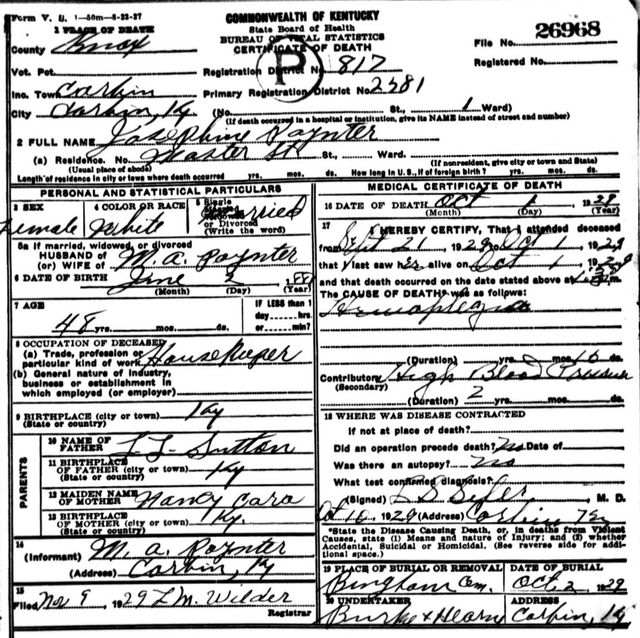 Form V. S. 1—50m—8-23-27
COMMONWEALTH OF KENTUCKY
State Board of Health
BUREAU OF VITAL STATISTICS
CERTIFICATE OF DEATH
File No. 26968
Registered No.
1 PLACE OF DEATH
County Knox
Vot. Pct.
Registration District No. 817
Inc. Town Corbin
Primary Registration District No. 2381
City Corbin, Ky (No. St., 1 Ward)
(If death occurred in a hospital or institution, give its NAME instead of street and number)
P
2 FULL NAME Josephine Poynter
(a) Residence. No. Master St. St., Ward.
(Usual place of abode) (If nonresident, give city or town and State)
Length of residence in city or town where death occurred yrs. mos. ds. How long in U. S., if of foreign birth? yrs. mos. ds.
PERSONAL AND STATISTICAL PARTICULARS
3 SEX Female
4 COLOR OR RACE White
5 Single Married Widowed or Divorced (Write the word) Married
5a If married, widowed, or divorced
HUSBAND of
(or) WIFE of M. A. Poynter
6 DATE OF BIRTH June 2 1881
(Month) (Day) (Year)
7 AGE 48 yrs. mos. ds.
IF LESS than 1
day......hrs.
or......min?
8 OCCUPATION OF DECEASED
(a) Trade, profession or
particular kind of work Housekeeper
(b) General nature of industry,
business or establishment in
which employed (or employer)
9 BIRTHPLACE (city or town) Ky
(State or country)
PARENTS
10 NAME OF FATHER Sutton
11 BIRTHPLACE OF FATHER (city or town) Ky
(State or country)
12 MAIDEN NAME OF MOTHER Nancy
13 BIRTHPLACE OF MOTHER (city or town) Ky.
(State or country)
14
(Informant) M. A. Poynter
(Address) Corbin, Ky
15
Filed Nov 9, 1929 L. M. Wilder
Registrar
MEDICAL CERTIFICATE OF DEATH
16 DATE OF DEATH Oct 1 1929
(Month) (Day) (Year)
17
I HEREBY CERTIFY, That I attended deceased
from Sept 21, 1929 to Oct 1, 1929
that I last saw her alive on Oct 1, 1929
and that death occurred on the date stated above at m.
The CAUSE OF DEATH* was as follows:
Hemaplegia
(Duration) yrs. mos. 10 ds.
Contributory High Blood Pressure
(Secondary)
(Duration) 2 yrs. mos. ds.
18 WHERE WAS DISEASE CONTRACTED
If not at place of death?
Did an operation precede death? No Date of
Was there an autopsy? No
What test confirmed diagnosis?
(Signed) M. D.
Oct 10, 1929 (Address) Corbin Ky
*State the Disease Causing Death, or, in deaths from Violent
Causes, state (1) Means and nature of Injury; and (2) whether
Accidental, Suicidal or Homicidal. (See reverse side for addi-
tional space.)
19 PLACE OF BURIAL OR REMOVAL Bingham Cem.
DATE OF BURIAL Oct. 2 1929
20 UNDERTAKER Burke & Hearn
ADDRESS Corbin, Ky